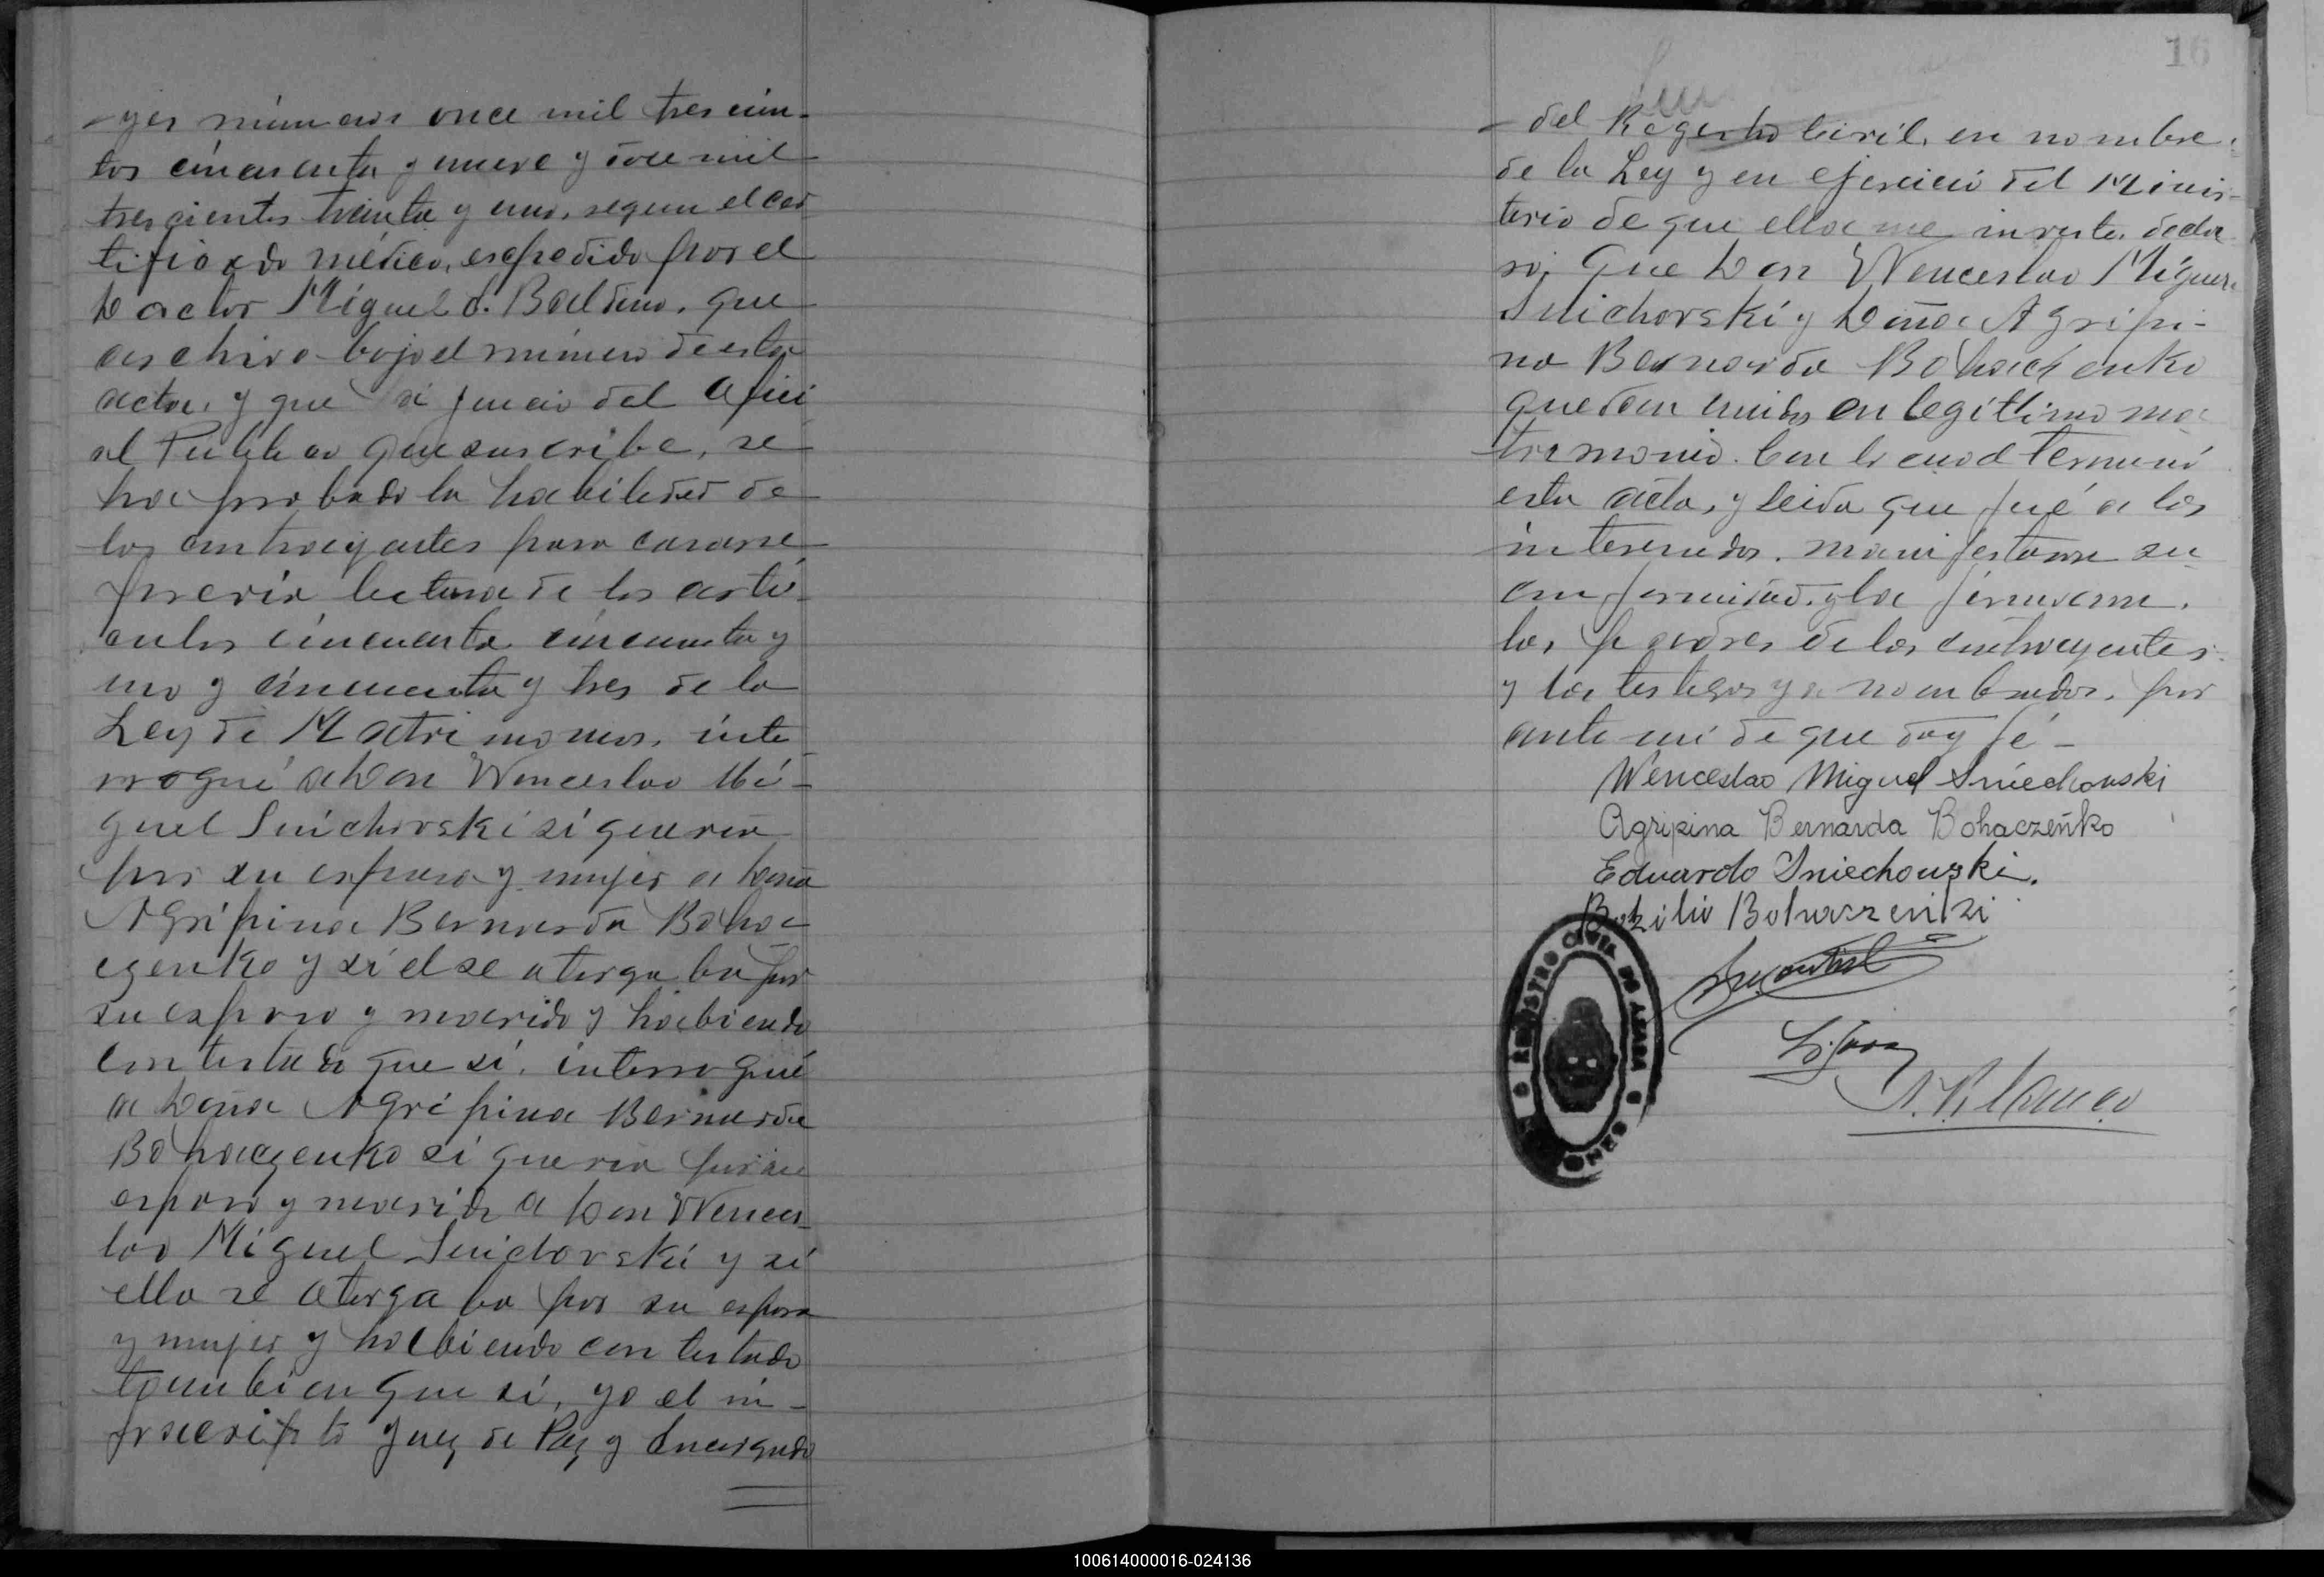 yes números once mil trescien-
tos cincuenta y nueve y doce mil
trescientos treinta y uno, segun el cer
tificado médico, expedido por el
Doctor Miguel A. Baldino, que
archivo bajo el número de esta
acta, y que a juicio del Ofici
al Público que suscribe, se
ha probado la habilidad de
los contrayentes para casarse
previa lectura de los artí-
culos cincuenta cincuenta y
uno y cincuenta y tres de la
Ley de Matrimonios, inte
rrogué a Don Wenceslao Mi-
guel Snichovski si queria
por su esposa y mujer a Doña
Agripina Bernarda Boha
czenko y si el se otorgaba por
su esposo y marido y habiendo
contestado que si, interrogué
a Doña Agripina Bernarda
Bohaczenko si queria por su
esposo y marido a Don Wences
lao Miguel Snichovski y si
ella se otorgaba por su esposa
y mujer y habiendo contestado
tambien que si, yo el in-
fraescripto Juez de Paz y Encargado
16
del Registro Civil, en nombre
de la Ley y en ejercicio del Minis-
terio de que ella me inviste, decla
ro; Que Don Wenceslao Miguel
Snichovski y Doña Agripi-
na Bernarda Bohaczenko
quedan unidos en legítimo ma
trimonio. Con lo cual terminó
esta acta, y leida que fué a los
interesados, manifestaron su
conformidad, y la firmaron,
los padres de los contrayentes
y los testigos ya nombrados, por
ante mi de que doy fé -
Wenceslao Miguel Sniechowski
Agripina Bernarda Bohaczeñko
Eduardo Sniechowski.
REGISTRO CIVIL DE AZARA
100614000016-024136